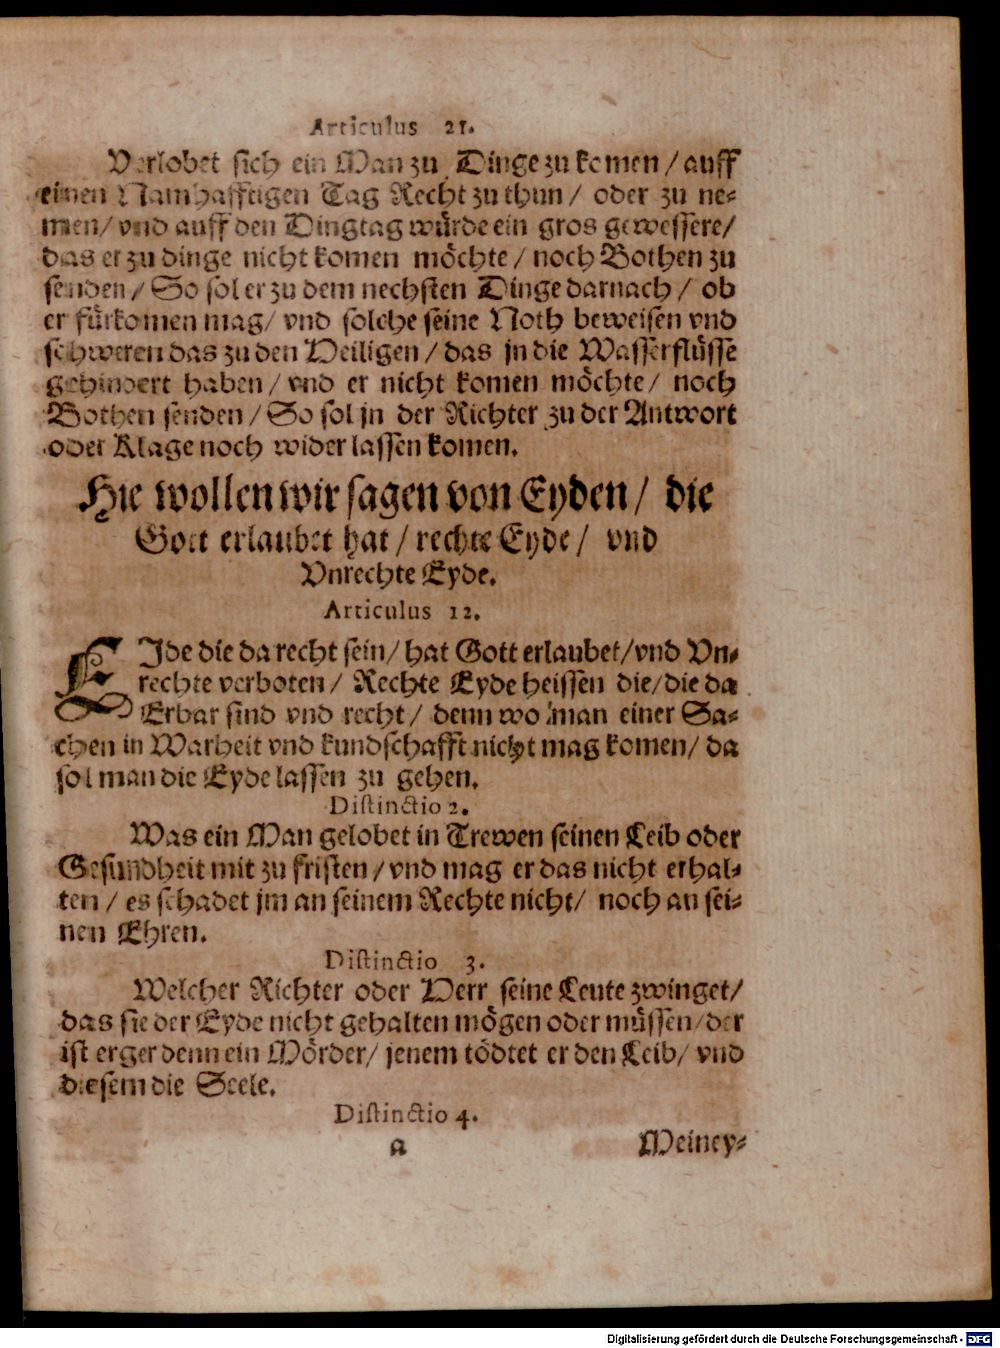 Articulus 21.
Verlobet sich ein Man zu Dinge zu komen / auff
einen Namhafftigen Tag Recht zu thun / oder zu ne-
men / vnd auff den Dingtag würde ein gros gewessere /
das er zu dinge nicht komen möchte / noch Bothen zu
senden / So sol er zu dem nechsten Dinge darnach / ob
er fürkomen mag / vnd solche seine Noth beweisen vnd
schweren das zu den Heiligen / das jn die Wasserflüsse
gehindert haben / vnd er nicht komen möchte / noch
Bothen senden / So sol jn der Richter zu der Antwort
oder Klage noch wider lassen komen.
Hie wollen wir sagen von Eyden / die
Gott erlaubet hat / rechte Eyde / vnd
Vnrechte Eyde.
Articulus 12.
EIde die da recht sein / hat Gott erlaubet / vnd Vn-
rechte verboten / Rechte Eyde heissen die / die da
Erbar sind vnd recht / denn wo man einer Sa-
chen in Warheit vnd kundschafft nicht mag komen / da
sol man die Eyde lassen zu gehen.
Distinctio 2.
Was ein Man gelobet in Trewen seinen Leib oder
Gesundheit mit zu fristen / vnd mag er das nicht erhal-
ten / es schadet jm an seinem Rechte nicht / noch an sei-
nen Ehren.
Distinctio 3.
Welcher Richter oder Herr seine Leute zwinget /
das sie der Eyde nicht gehalten mögen oder müssen / der
ist erger denn ein Mörder / jenem tödtet er den Leib / vnd
diesem die Seele.
Distinctio 4.
a Meiney-
Digitalisierung gefördert durch die Deutsche Forschungsgemeinschaft - DFG